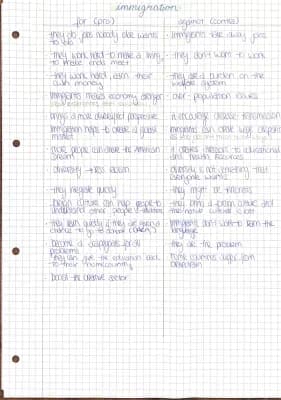 immigration
for (pro)
against (contra)
- they do jobs nobody else wants to do
- immigrants take away jobs
- they work hard to make a living, to make ends meet
- they don't want to work
- they work hard, earn their own money
- they are a burden on the welfare system
- immigrants makes economy stronger
- over-population issues
- brings a more diversified perspective
- it encourage disease transmission
- immigration helps to create a global market
- immigrants can create wage
- more people can share the American dream
- it creates to educational and health resources
- diversity → less racism
- diversity is not something that everyone wants
- they integrate quickly
- they might be terrorists
- foreign culture can help people to understand other people's
- they bring a foreign culture and the native culture is lost
- they learn quickly if they are given a chance to go to school
- immigrants don't want to learn the language
- become a scapegoats for all problems
- they are the problem
- they can give the education back to their homecountry
- home countries suffer from braindrain
- benefit the creative sector